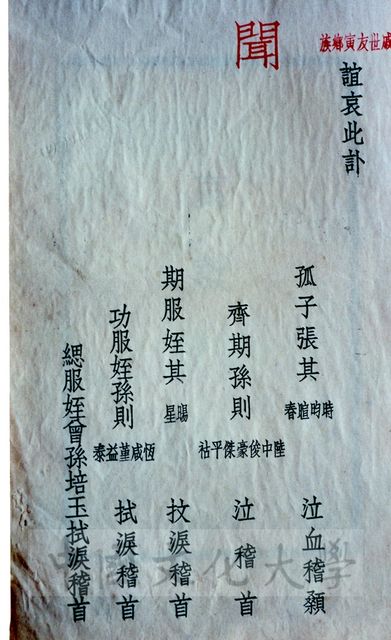 戚世友寅鄉族
聞
誼哀此訃
孤子張其 時昀暄春 泣血稽顙
齊期孫則 陸中俊豪傑平祜 泣稽首
期服姪其 暘星 抆淚稽首
功服姪孫則 恆咸堇益泰 拭淚稽首
緦服姪曾孫培玉拭淚稽首
中國文化大學